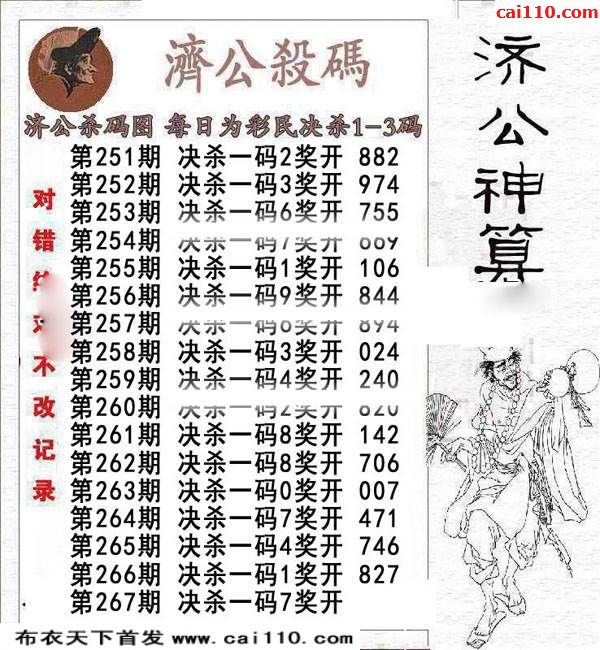 cai110.com
濟公殺碼
济公神算
济公杀码图 每日为彩民决杀1-3码
对错绝对不改记录
第251期 决杀一码2奖开 882
第252期 决杀一码3奖开 974
第253期 决杀一码6奖开 755
第254期 决杀一码7奖开 669
第255期 决杀一码1奖开 106
第256期 决杀一码9奖开 844
第257期 决杀一码6奖开 894
第258期 决杀一码3奖开 024
第259期 决杀一码4奖开 240
第260期 决杀一码2奖开 820
第261期 决杀一码8奖开 142
第262期 决杀一码8奖开 706
第263期 决杀一码0奖开 007
第264期 决杀一码7奖开 471
第265期 决杀一码4奖开 746
第266期 决杀一码1奖开 827
第267期 决杀一码7奖开
布衣天下首发 www.cai110.com